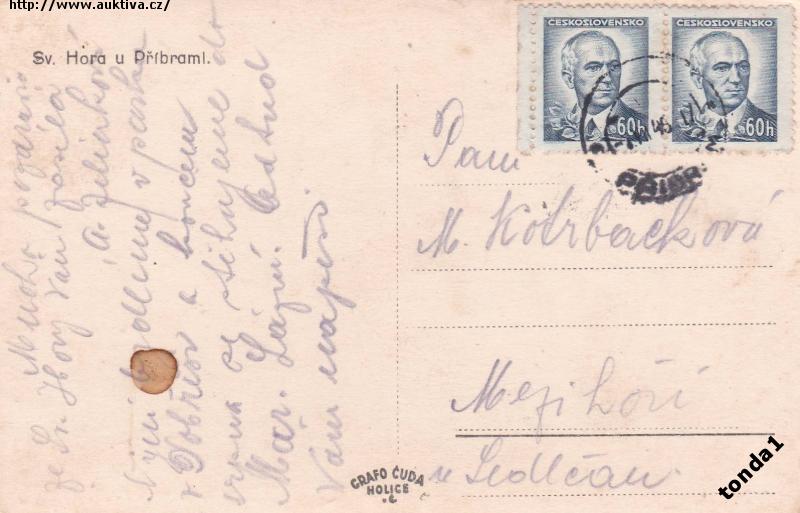 http://www.auktiva.cz/
Sv. Hora u Příbrami.
Mnoho pozdravů
ze Sv. Hory Vám zasílá
A. Jelínková
Nyní bydlíme v
v Dobříši a koncem
srpna se stěhujeme do
Mar. Lázní. Odtud
Vám napíši
ČESKOSLOVENSKO
60h
ČESKOSLOVENSKO
60h
Paní
M. Kotrbacková
Mezihoří
u Sedlčan
GRAFO ČUDA
HOLICE
tonda1